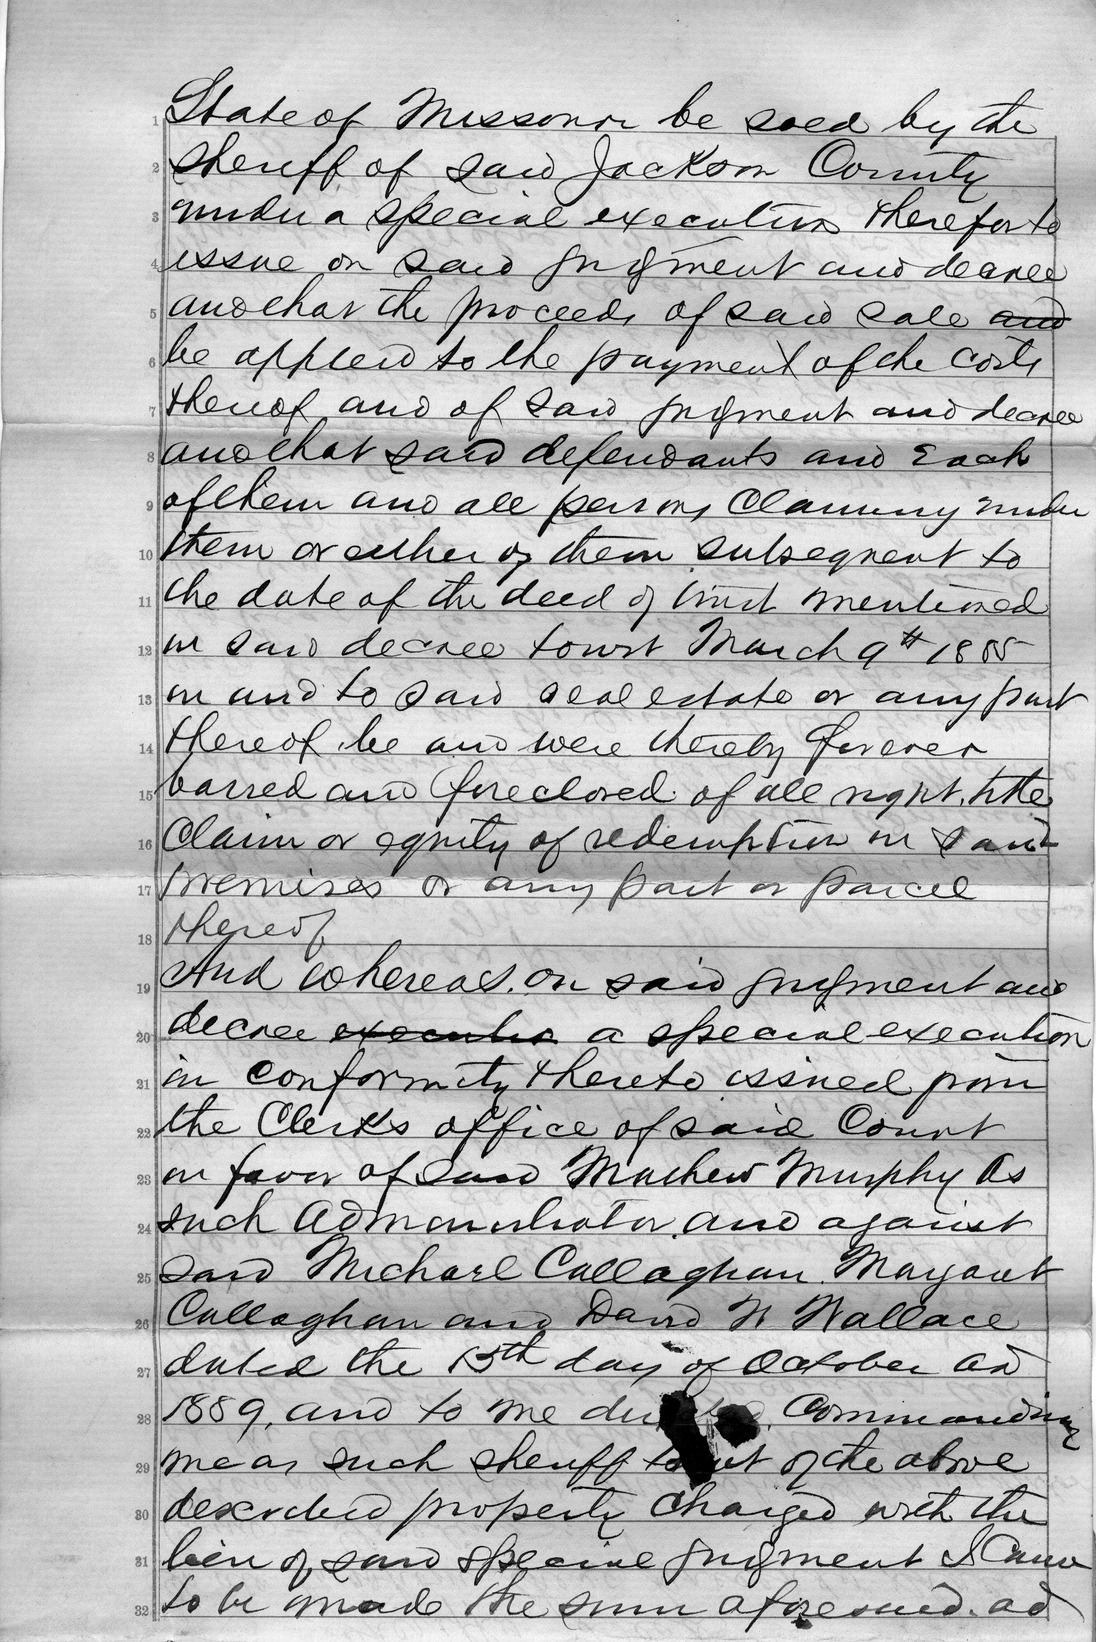 State of Missouri be soed by the
sheriff of said Jackson County
under a special execution therefor to
issue on said judgment and decree
and that the proceeds of said sale and
be applied to the payment of the costs
thereof and of said judgment and decree
and that said defendants and Each
of them and all persons Claiming under
them or either of them subsequent to
the date of the deed of trust mentioned
in said decree towit March 9th 1885
in and to said real estate or any part
thereof be and were thereby forever
barred and foreclosed of all right, title
Claim or equity of redemption in said
premises or any part or parcel
thereof
And whereas, on said judgment and
decree execution a special execution
in conformity thereto issued from
the Clerks office of said Court
in favor of said Mathew Murphy As
such Administrator and against
said Michael Callaghan Margaret
Callaghan and David W Wallace
dated the 15th day of October AD
1889, and to me Commanding
me as such sheriff out of the above
described property Charged with the
lien of said special judgment I Cause
to be made the sum aforesaid. ad
1
2
3
4
5
6
7
8
9
10
11
12
13
14
15
16
17
18
19
20
21
22
23
24
25
26
27
28
29
30
31
32